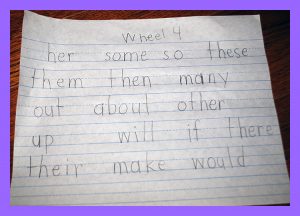 Wheel 4
her some so these
them then many
out about other
up will if there
their make would